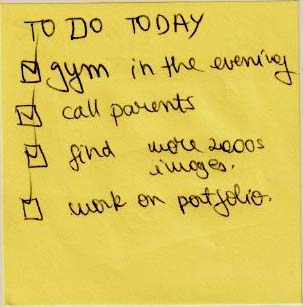 TO DO TODAY
gym in the evening
call parents
find more 2000s
images.
work on portfolio.